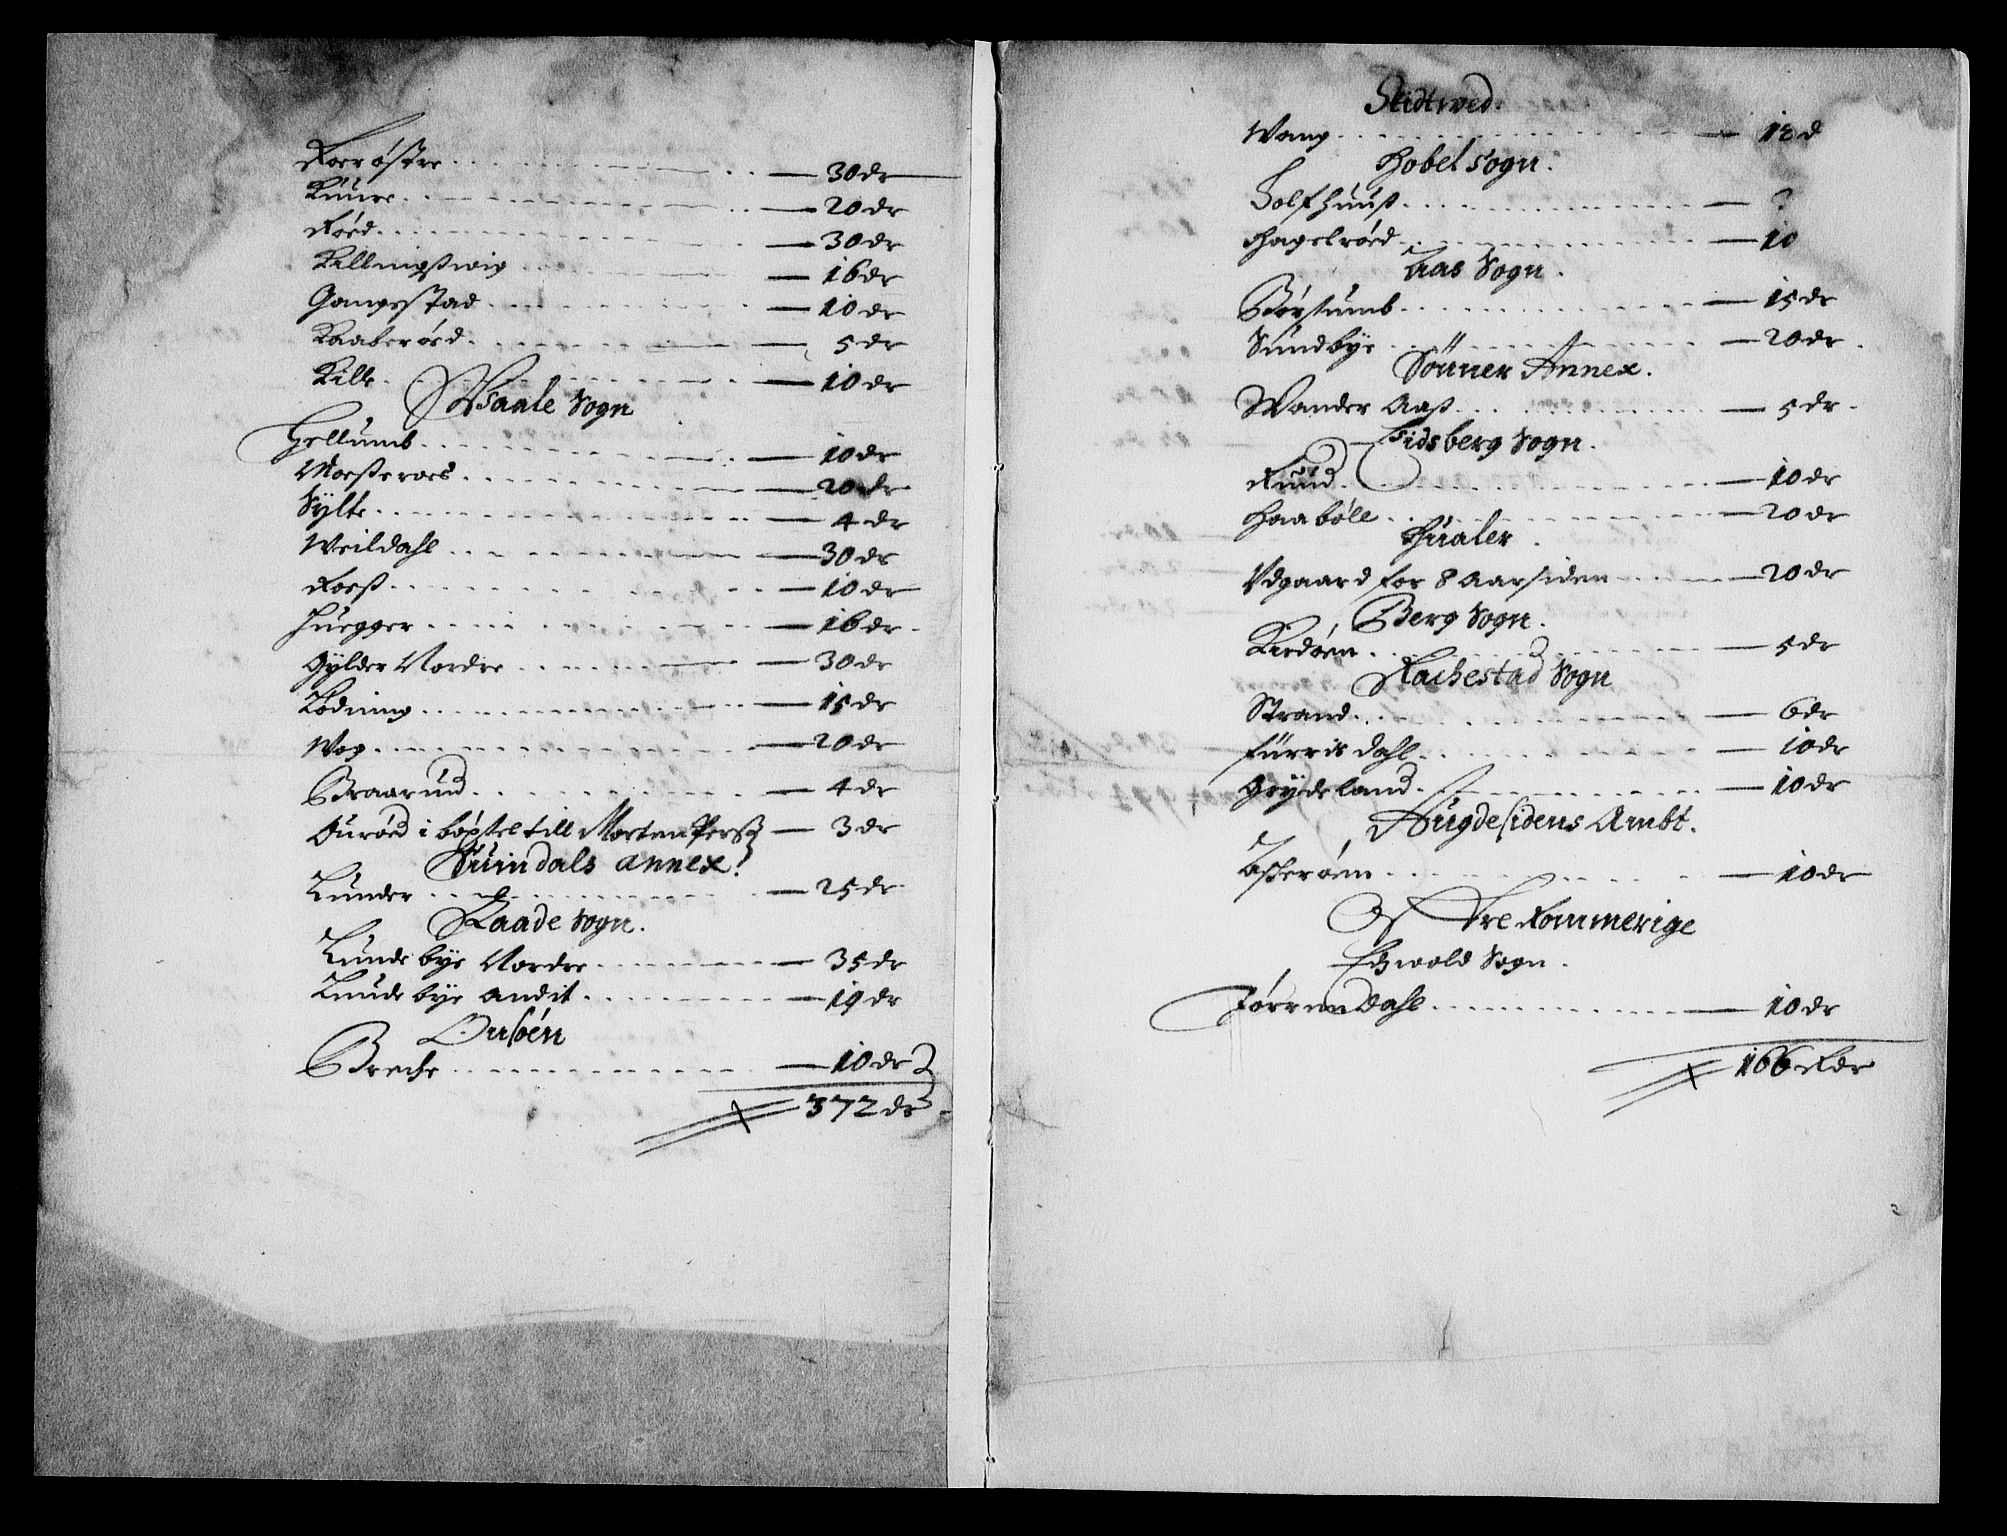 Roer østre - - - 30 dr
Kuure - - - 20 dr
Røed - - - 30 dr
Killingszwig - - - 16 dr
Gangestad - - - 10 dr
Kaaberøed - - - 5 dr
Kille - - - 10 dr
Waale Sogn
Hellumb - - - 10 dr
Moesseroes - - - 20 dr
Sylte - - - 4 dr
Weildahl - - - 30 dr
Roesz - - - 10 dr
Huegger - - - 16 dr
Gylder Nordre - - - 30 dr
Lødning - - - 15 dr
Wog - - - 20 dr
Braarud - - - 4 dr
Ourøed i böxsel till Morten Persz - 3 dr
Suindals annex
Lunder - - - 25 dr
Raade Sogn.
Lunde bye Nordre - - - 35 dr
Lunde bye andit - - - 19 dr
Onsöen
Breche - - - 10 dr
372 dr
Skidtwed.
Wang - - - 18 d
Hobel Sogn.
Solfhuusz - - - ?
Hagelrøed - - - 10
Aas Sogn.
Børsumb - - - 15 dr
Sundbye - - - 20 dr
Sönner Annex.
Wander Aasz - - - 5 dr
Eidsberg Sogn.
Ruud - - - 10 dr
Haabøll - - - 20 dr
Hualer
Udgaard for 8 Aar siden - - - 20 dr
Berg Sogn.
Kirdøen - - - 5 dr
Rachestad Sogn
Strand - - - 6 dr
Furris dahl - - - 10 dr
Grydeland - - - 10 dr
Bugdesidens Ambt.
Asserøen - - - 10 dr
Öfre Rommerige
Edswold Sogn.
Jörrundahl - - - 10 dr
166 Rdr